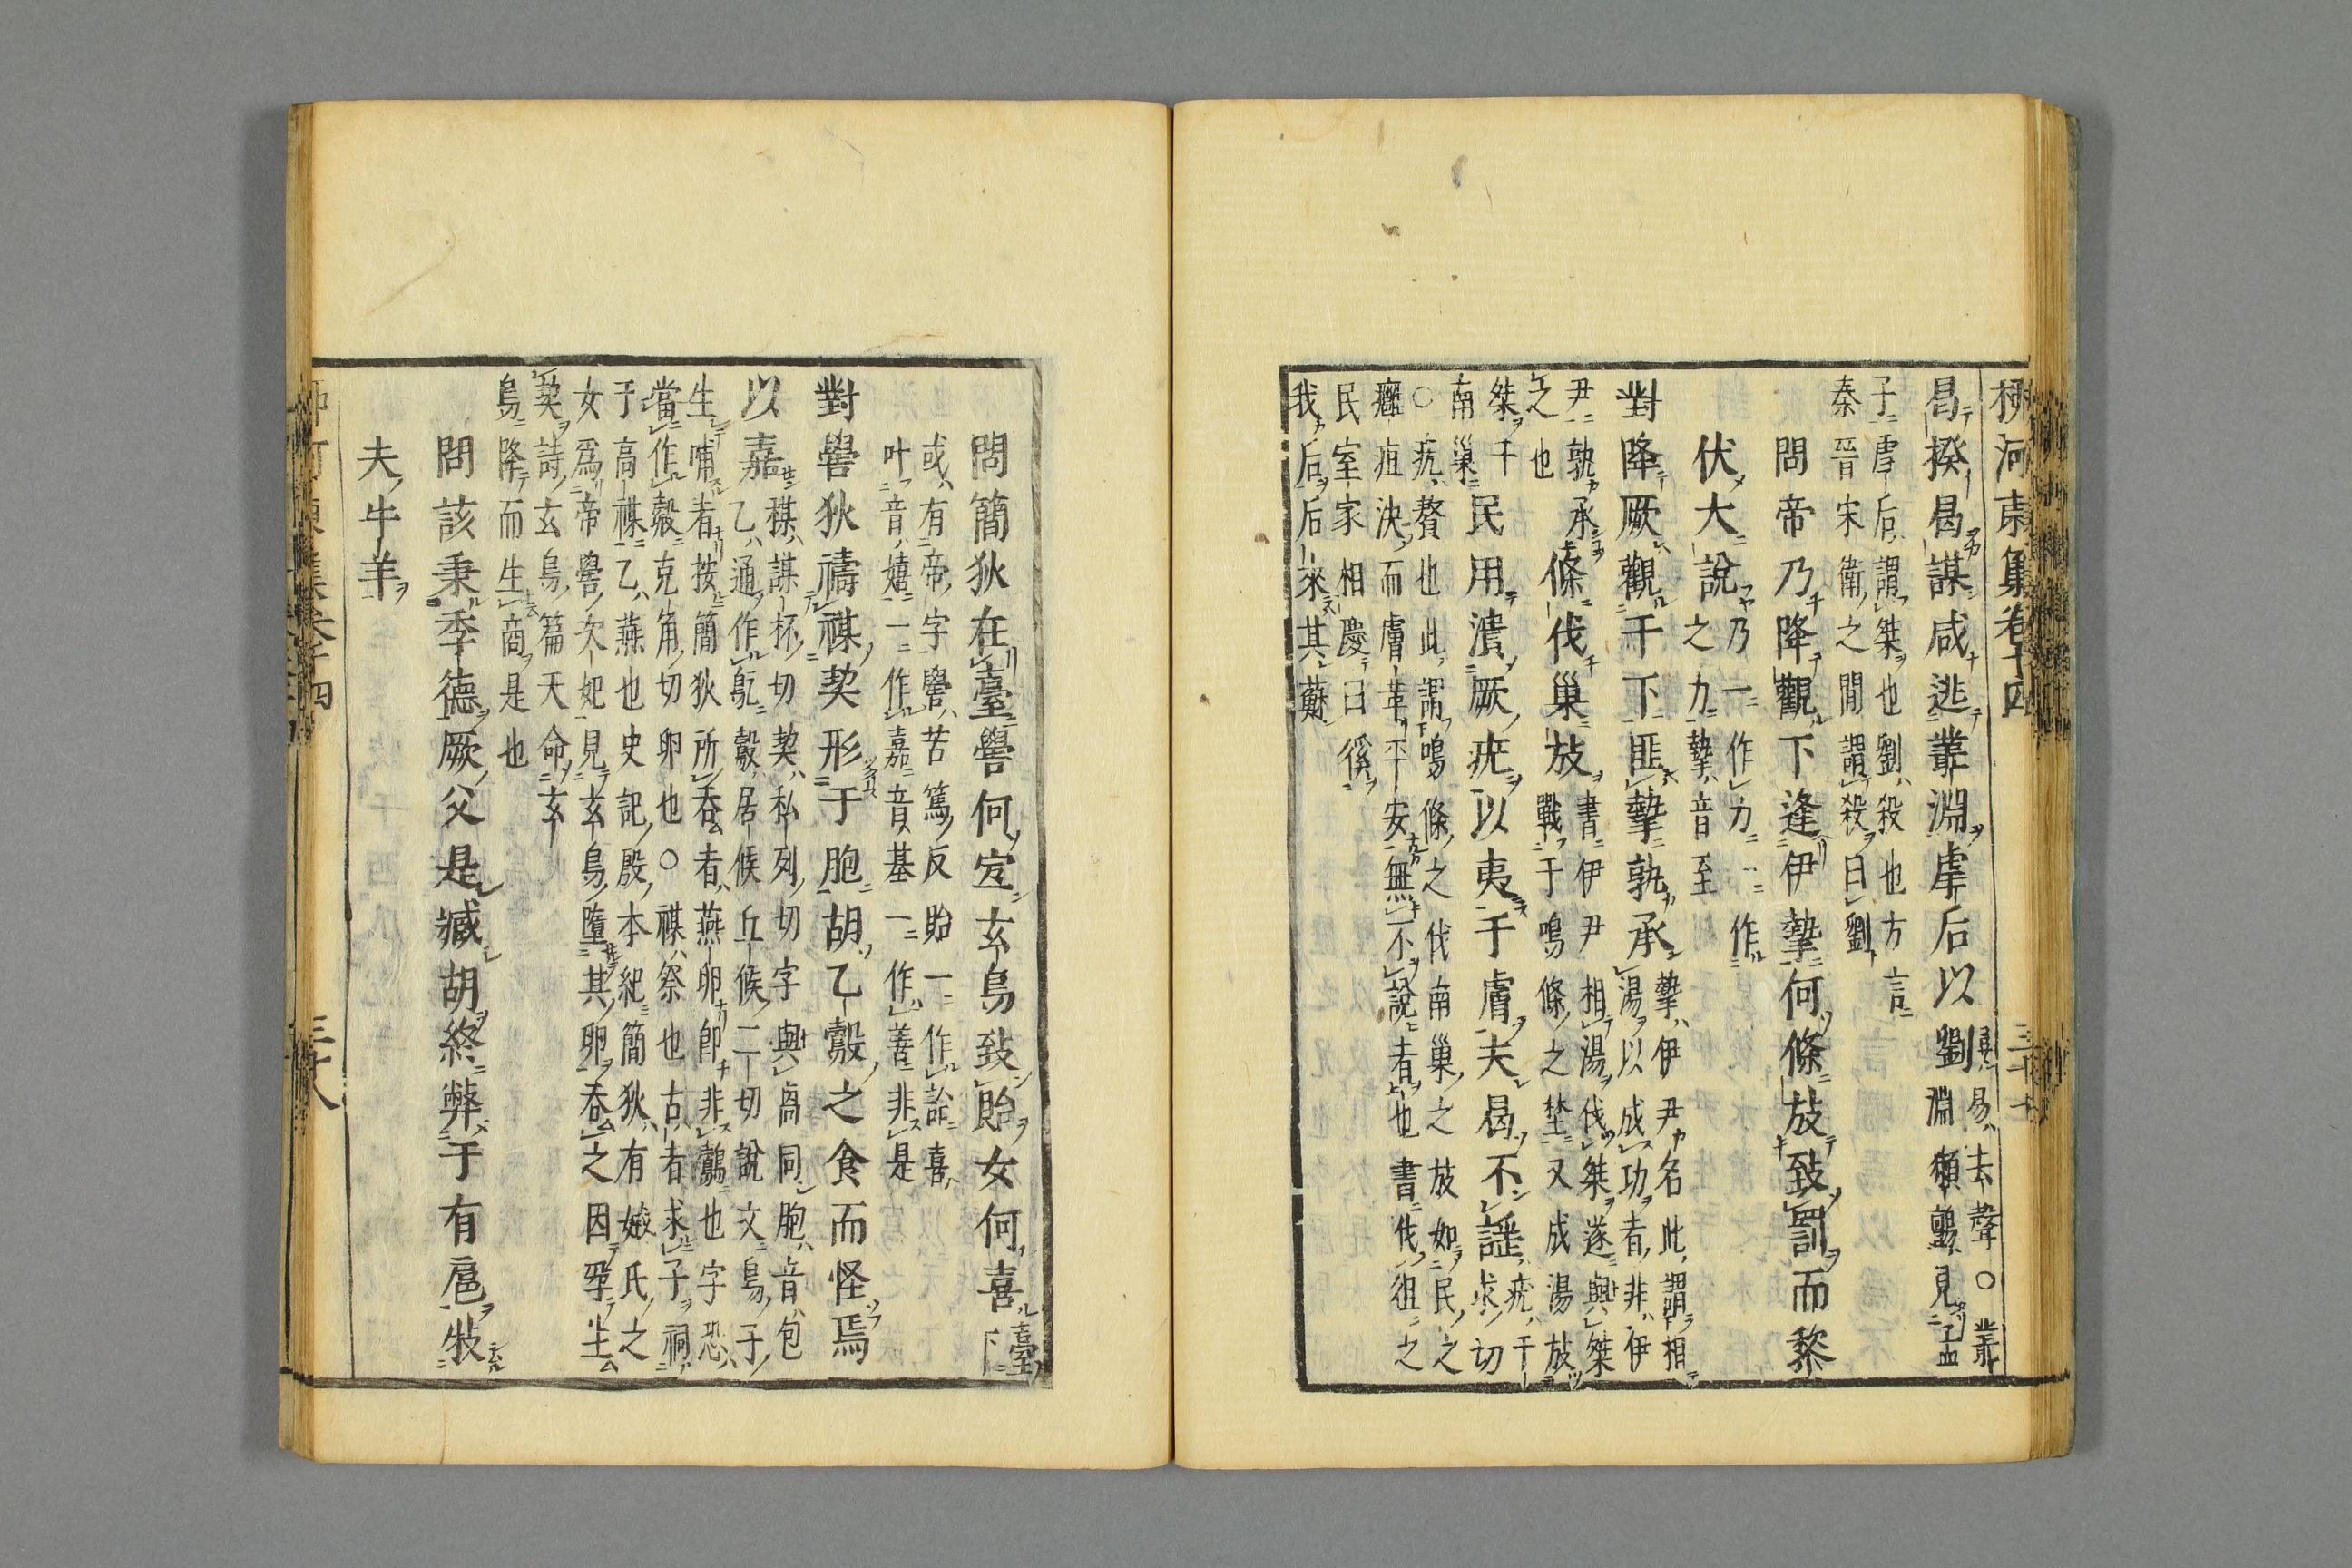 柳河東集卷十四 三十七
曷揆曷謀咸逃叢淵虐后以劉
曷易去聲○叢
淵獺鸇見孟
子虐后謂桀也劉殺也方言
秦晉宋衛之間謂殺曰劉
問帝乃降觀下逢伊摯何條放致罰而黎
伏大說
乃一作力一作
之力摯音至
對降厥觀于下匪摯孰承
摯伊尹名此謂相
湯以成功者非伊
尹孰承
之也
條伐巢放
書伊尹相湯伐桀遂與桀
戰于鳴條之埜又成湯放
桀于
南巢
民用潰厥疣以夷于膚夫曷不謡
疣于
求切
○疣贅也此謂鳴條之伐南巢之放如民之
癰疽決而膚革平安無不說者也書伐徂之
民室家相慶曰徯
我后后來其蘇
問簡狄在臺嚳何宜玄鳥致貽女何喜
臺
下
或有帝字嚳苦篤反貽一作詒喜
叶音嬉一作嘉音基一作善非是
對嚳狄禱禖契形于胞胡乙鷇之食而怪焉
以嘉
禖謀杯切契私列切字與卨同胞音包
乙通作鳦鷇居候丘候二切說文鳥子
生哺者按簡狄所吞者燕卵即非鷇也字恐
當作㱿克角切卵也○禖祭也古者求子祠
于高禖乙燕也史記殷本紀簡狄有娀氏之
女爲帝嚳次妃見玄鳥墮其卵吞之因孕生
契詩玄鳥篇天命玄
鳥降而生商是也
問該秉季德厥父是臧胡終弊于有扈牧
夫牛羊
三十八